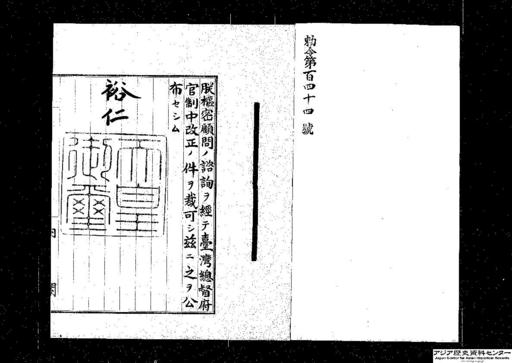 勅令第百四十四號
朕樞密顧問ノ諮詢ヲ經テ臺灣總督府
官制中改正ノ件ヲ裁可シ茲ニ之ヲ公
布セシム
裕仁
天皇
御璽
アジア歴史資料センター
Japan Center for Asian Historical Records